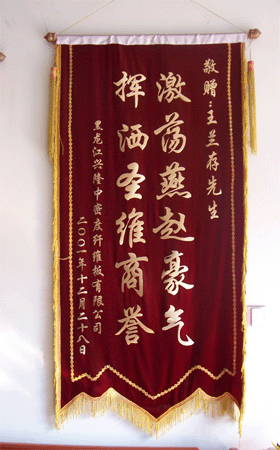 敬赠:王兰存先生
激荡燕赵豪气
挥洒圣维商誉
黑龙江兴隆中密度纤维板有限公司
二〇〇一年十二月二十八日